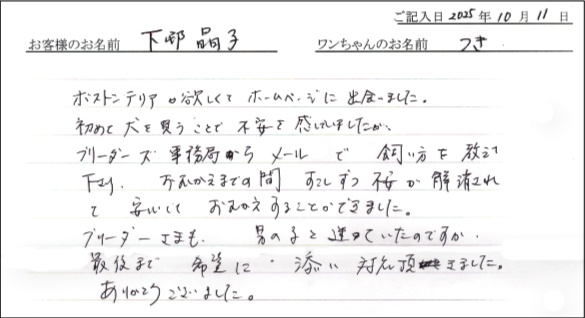 ご記入日 2025年 10月 11日
お客様のお名前 下邨 晶子 ワンちゃんのお名前 つき
ボストンテリアが欲しくて ホームページに 出会いました。
初めて 犬を買うことで 不安を 感じていましたが、
ブリーダーズ 事務局から メール で 飼い方を 教えて
下さり、 おむかえまでの間 すこしずつ 不安が 解消され
て 安心して おむかえ することができました。
ブリーダーさまも、 男の子と 迷っていたのですが、
最後まで 希望に 添い 対応頂きました。
ありがとうございました。